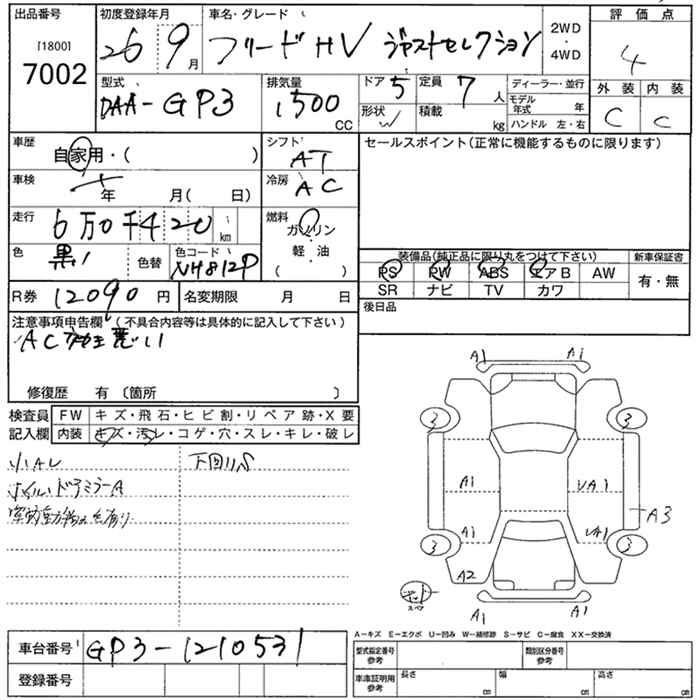 出品番号
[1800]
7002
初度登録年月
26 9月
車名・グレード
フリードHV ジャストセレクション
2WD
・
4WD
評価点
4
外装 内装
C C
型式
DAA-GP3
排気量
1500
CC
ドア 5
形状
定員 7人
積載 kg
ディーラー・並行
モデル年式 年
ハンドル 左・右
車歴
自家用・( )
シフト
AT
車検
年 月( 日)
冷房
AC
走行
6万0千420 km
燃料
ガソリン
軽油
( )
色
黒
色替
色コード
NH812P
R券 12090円
名変期限 月 日
セールスポイント(正常に機能するものに限ります)
装備品(純正品に限り丸をつけて下さい)
PS PW ABS エアB AW
SR ナビ TV カワ
新車保証書
有・無
後日品
注意事項申告欄 (不具合内容等は具体的に記入して下さい)
AC 悪い
修復歴 有〔箇所 〕
検査員記入欄
FW キズ・飛石・ヒビ割・リペア跡・X要
内装 キズ・汚レ・コゲ・穴・スレ・キレ・破レ
小AU
下回りS
ホイル、ドアミラーA
A1 A1
3 3
A1 UA1
A3
A1 UA1
3 3
A2
スペア
A1 A1
A-キズ E-エクボ U-凹み W-補修跡 S-サビ C-腐食 XX-交換済
車台番号 GP3-1210531
登録番号
型式指定番号 参考
類別区分番号 参考
車庫証明用 参考
長さ cm 幅 cm 高さ cm